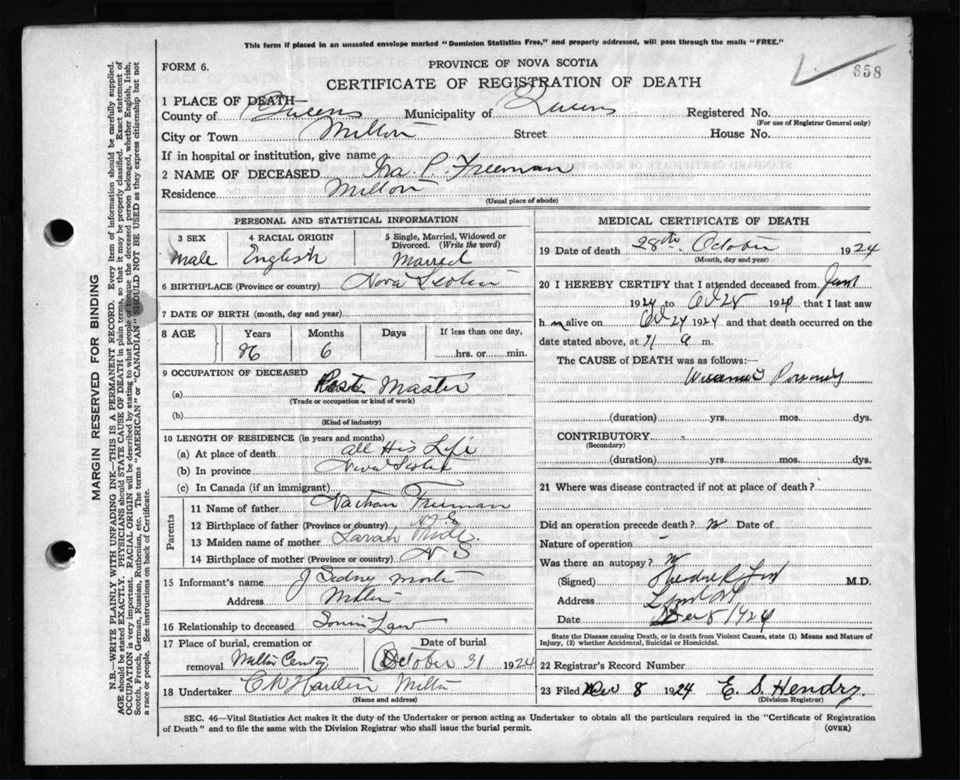 This form if placed in an unsealed envelope marked "Dominion Statistics Free," and properly addressed, will pass through the mails "FREE."
FORM 6.
PROVINCE OF NOVA SCOTIA
CERTIFICATE OF REGISTRATION OF DEATH
858
1 PLACE OF DEATH—
County of Queens Municipality of Queens Registered No.
(For use of Registrar General only)
City or Town Milton Street House No.
If in hospital or institution, give name
2 NAME OF DECEASED Ira P. Freeman
Residence Milton
(Usual place of abode)
PERSONAL AND STATISTICAL INFORMATION
3 SEX 4 RACIAL ORIGIN 5 Single, Married, Widowed or Divorced. (Write the word)
Male English Married
6 BIRTHPLACE (Province or country) Nova Scotia
7 DATE OF BIRTH (month, day and year)
8 AGE Years Months Days If less than one day,
86 6 hrs. or min.
9 OCCUPATION OF DECEASED
(a) Post Master
(Trade or occupation or kind of work)
(b)
(Kind of industry)
10 LENGTH OF RESIDENCE (in years and months)
(a) At place of death all His Life
(b) In province Nova Scotia
(c) In Canada (if an immigrant)
Parents
11 Name of father Nathan Freeman
12 Birthplace of father (Province or country) N S
13 Maiden name of mother Sarah
14 Birthplace of mother (Province or country) N S
15 Informant's name J Sidney
Address Milton
16 Relationship to deceased Son in Law
17 Place of burial, cremation or removal Milton Date of burial October 31 1924
18 Undertaker Milton
(Name and address)
MEDICAL CERTIFICATE OF DEATH
19 Date of death 28th October 1924
(Month, day and year)
20 I HEREBY CERTIFY that I attended deceased from
1924 to Oct 28 1924 that I last saw
h m alive on Oct 24 1924 and that death occurred on the
date stated above, at a m.
The CAUSE of DEATH was as follows:—
(duration) yrs. mos. dys.
CONTRIBUTORY
(Secondary)
(duration) yrs. mos. dys.
21 Where was disease contracted if not at place of death?
Did an operation precede death? Date of
Nature of operation -
Was there an autopsy?
(Signed) M.D.
Address
Date 1924
State the Disease causing Death, or in death from Violent Causes, state (1) Means and Nature of Injury, (2) whether Accidental, Suicidal or Homicidal.
22 Registrar's Record Number
23 Filed Nov 8 1924 E. S. Hendry
(Division Registrar)
SEC. 46—Vital Statistics Act makes it the duty of the Undertaker or person acting as Undertaker to obtain all the particulars required in the "Certificate of Registration
of Death" and to file the same with the Division Registrar who shall issue the burial permit. (OVER)
MARGIN RESERVED FOR BINDING
N.B.—WRITE PLAINLY WITH UNFADING INK—THIS IS A PERMANENT RECORD. Every item of information should be carefully supplied.
AGE should be stated EXACTLY. PHYSICIANS should STATE CAUSE OF DEATH in plain terms, so that it may be properly classified. Exact statement of
OCCUPATION is very important. RACIAL ORIGIN will be described by stating to what people or tongue the deceased person belonged, whether English, Irish,
Scotch, French, German, Russian, Ruthenian, etc. The terms "AMERICAN" or "CANADIAN" SHOULD NOT BE USED as they express citizenship but not
a race or people. See instructions on back of Certificate.